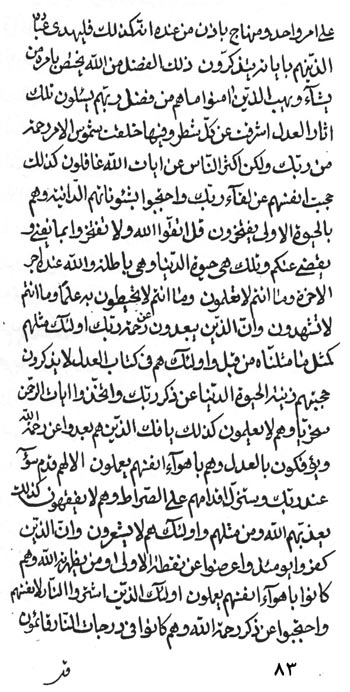 على امر واحد ومنهاج باذن من عنده انه كذلك فليهدى عباده
الذينهم بايات ربه يتذكرون ذلك الفضل من الله يختص بامره من
يشآء ويهب الذين امنوا ما هم من فضل ربهم يسئلون تلك
اثار العدل اشرقت عن كل سطر وفيها خلقت شموس الامر رحمة
من ربك ولكن اكثر الناس عن ايات الله غافلون كذلك
حجبت انفسهم عن لقآء ربك واحتجبوا بشئوناتهم الدانية وهم
بالحيوة الاولى يفرحون قل اتقوا الله ولا تفرحوا بما يقضى و
يمضى عنكم وتلك هى حيوة الدنيا وهى باطلة والله عنده اجر
الاخرة وما انتم لا تعلمون وما انتم لا تحيطون به علما وما انتم
لا تشهدون وان الذين يبعدون عن رحمة ربك اولئك مثلهم
كمثل ما مثلناه من قبل واولئك هم فى كتاب العدل لا يذكرون
حجبتهم زينة الحيوة الدنيا عن ذكر ربك واتخذوا ايات الرحمن
سخريا وهم لا يعلمون كذلك يافك الذينهم بعدوا عن رحمة الله
ويؤفكون بالعدل وهم باهوآء انفسهم يعملون الا لهم قدم سوء
عند ربك وستزل اقدامهم على الصراط وهم لا يفقهون كذلك
يعذبهم الله ومن مثلهم واولئك هم لا يشعرون وان الذين
كفروا يومئذ واعرضوا عن نقطة الاولى ومن يظهره الله وهم
كانوا باهوآء انفسهم يعملون اولئك الذين اشتروا النار لانفسهم
واحتجبوا عن ذكر رحمة الله وهم كانوا فى درجات النار قائمون
٨٣